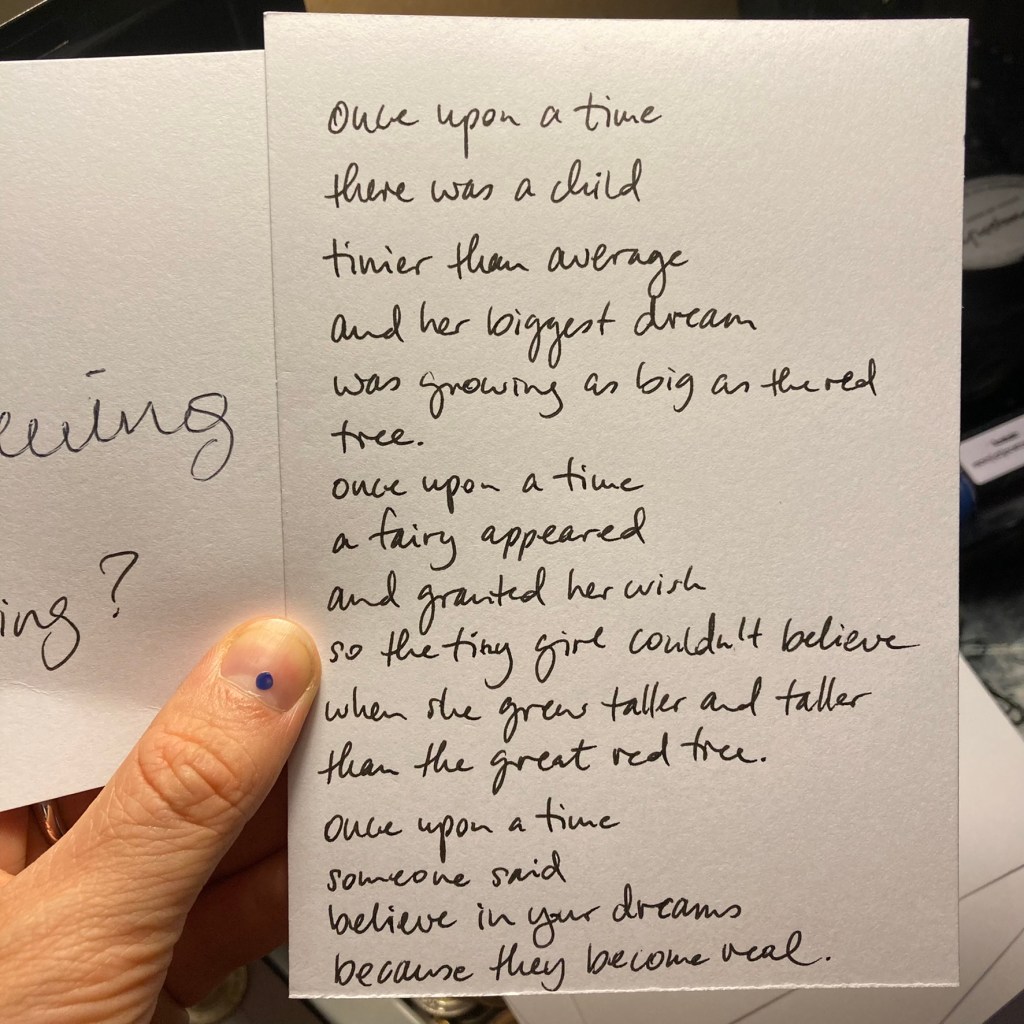 once upon a time
there was a child
tinier than average
and her biggest dream
was growing as big as the red
tree.
once upon a time
a fairy appeared
and granted her wish
so the tiny girl couldn't believe
when she grew taller and taller
than the great red tree.
once upon a time
someone said
believe in your dreams
because they become real.
ing?